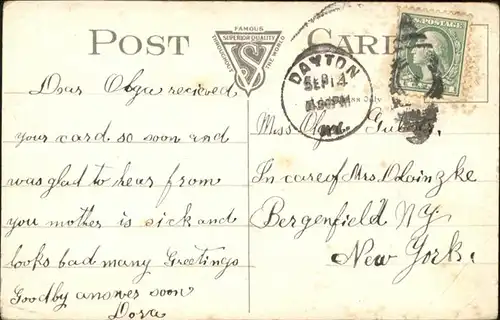 POST CARD
FAMOUS
SUPERIOR QUALITY
THROUGHOUT THE WORLD
S
DAYTON
SEP 14
PM
POSTAGE
Dear Olga recieved
your card so soon and
was glad to hear from
you mother is sick and
looks bad many Greetings
Goodby answer soon
Dora
Miss Olga
In care of Mrs.
Bergenfield NY
New York.